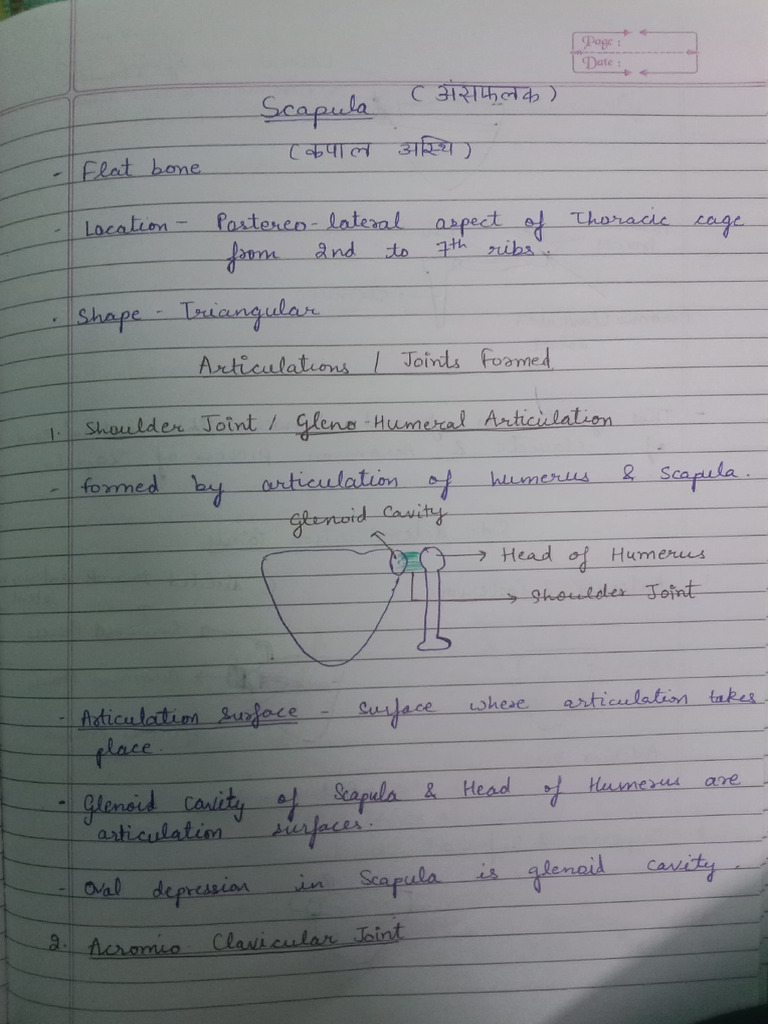 Page :
Date :
Scapula (अंसफलक)
(कपाल अस्थि)
- Flat bone
- Location - Postereo-lateral aspect of Thoracic cage
from 2nd to 7th ribs.
. Shape - Triangular
Articulations / Joints formed
1. Shoulder Joint / Gleno-Humeral Articulation
- formed by articulation of humerus & Scapula.
Glenoid Cavity
→ Head of Humerus
→ Shoulder Joint
- Articulation surface - surface where articulation takes
place.
- Glenoid cavity of Scapula & Head of Humerus are
articulation surfaces.
- Oval depression in Scapula is glenoid cavity.
2. Acromio Clavicular Joint